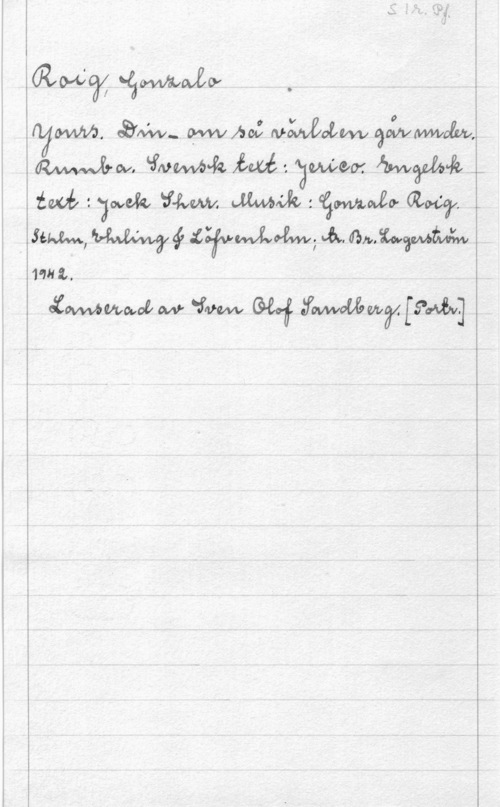 S 1 r. Pf.
Roig, Gonzalo
Yours. Din - om så världen går under.
Rumba. Svensk text : Jerico. Engelsk
text : Jack Sherr. Musik : Gonzalo Roig.
Sthlm, Ehrling & Löfvenholm; tr. Br. Lagerström
1942.
Lanserad av Sven Olof Sandberg. [Portr.]